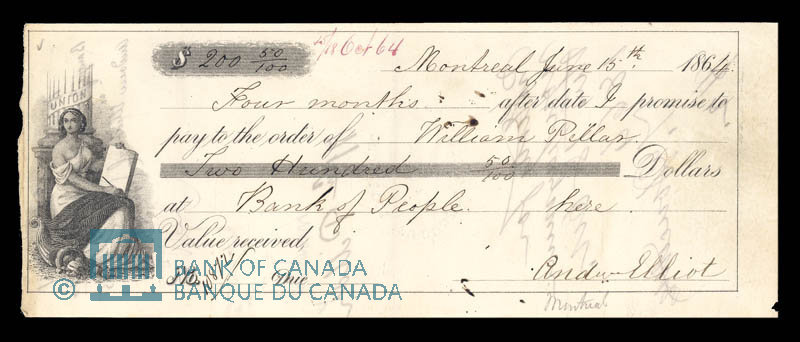 $ 200 50/100 15/18 Oct 64 Montreal June 15th. 1864.
UNION
Four months after date I promise to
pay to the order of William Pillar
Two Hundred 50/100 Dollars
at Bank of People. here
Value received
Due Andw Elliot
Montreal
BANK OF CANADA
© BANQUE DU CANADA